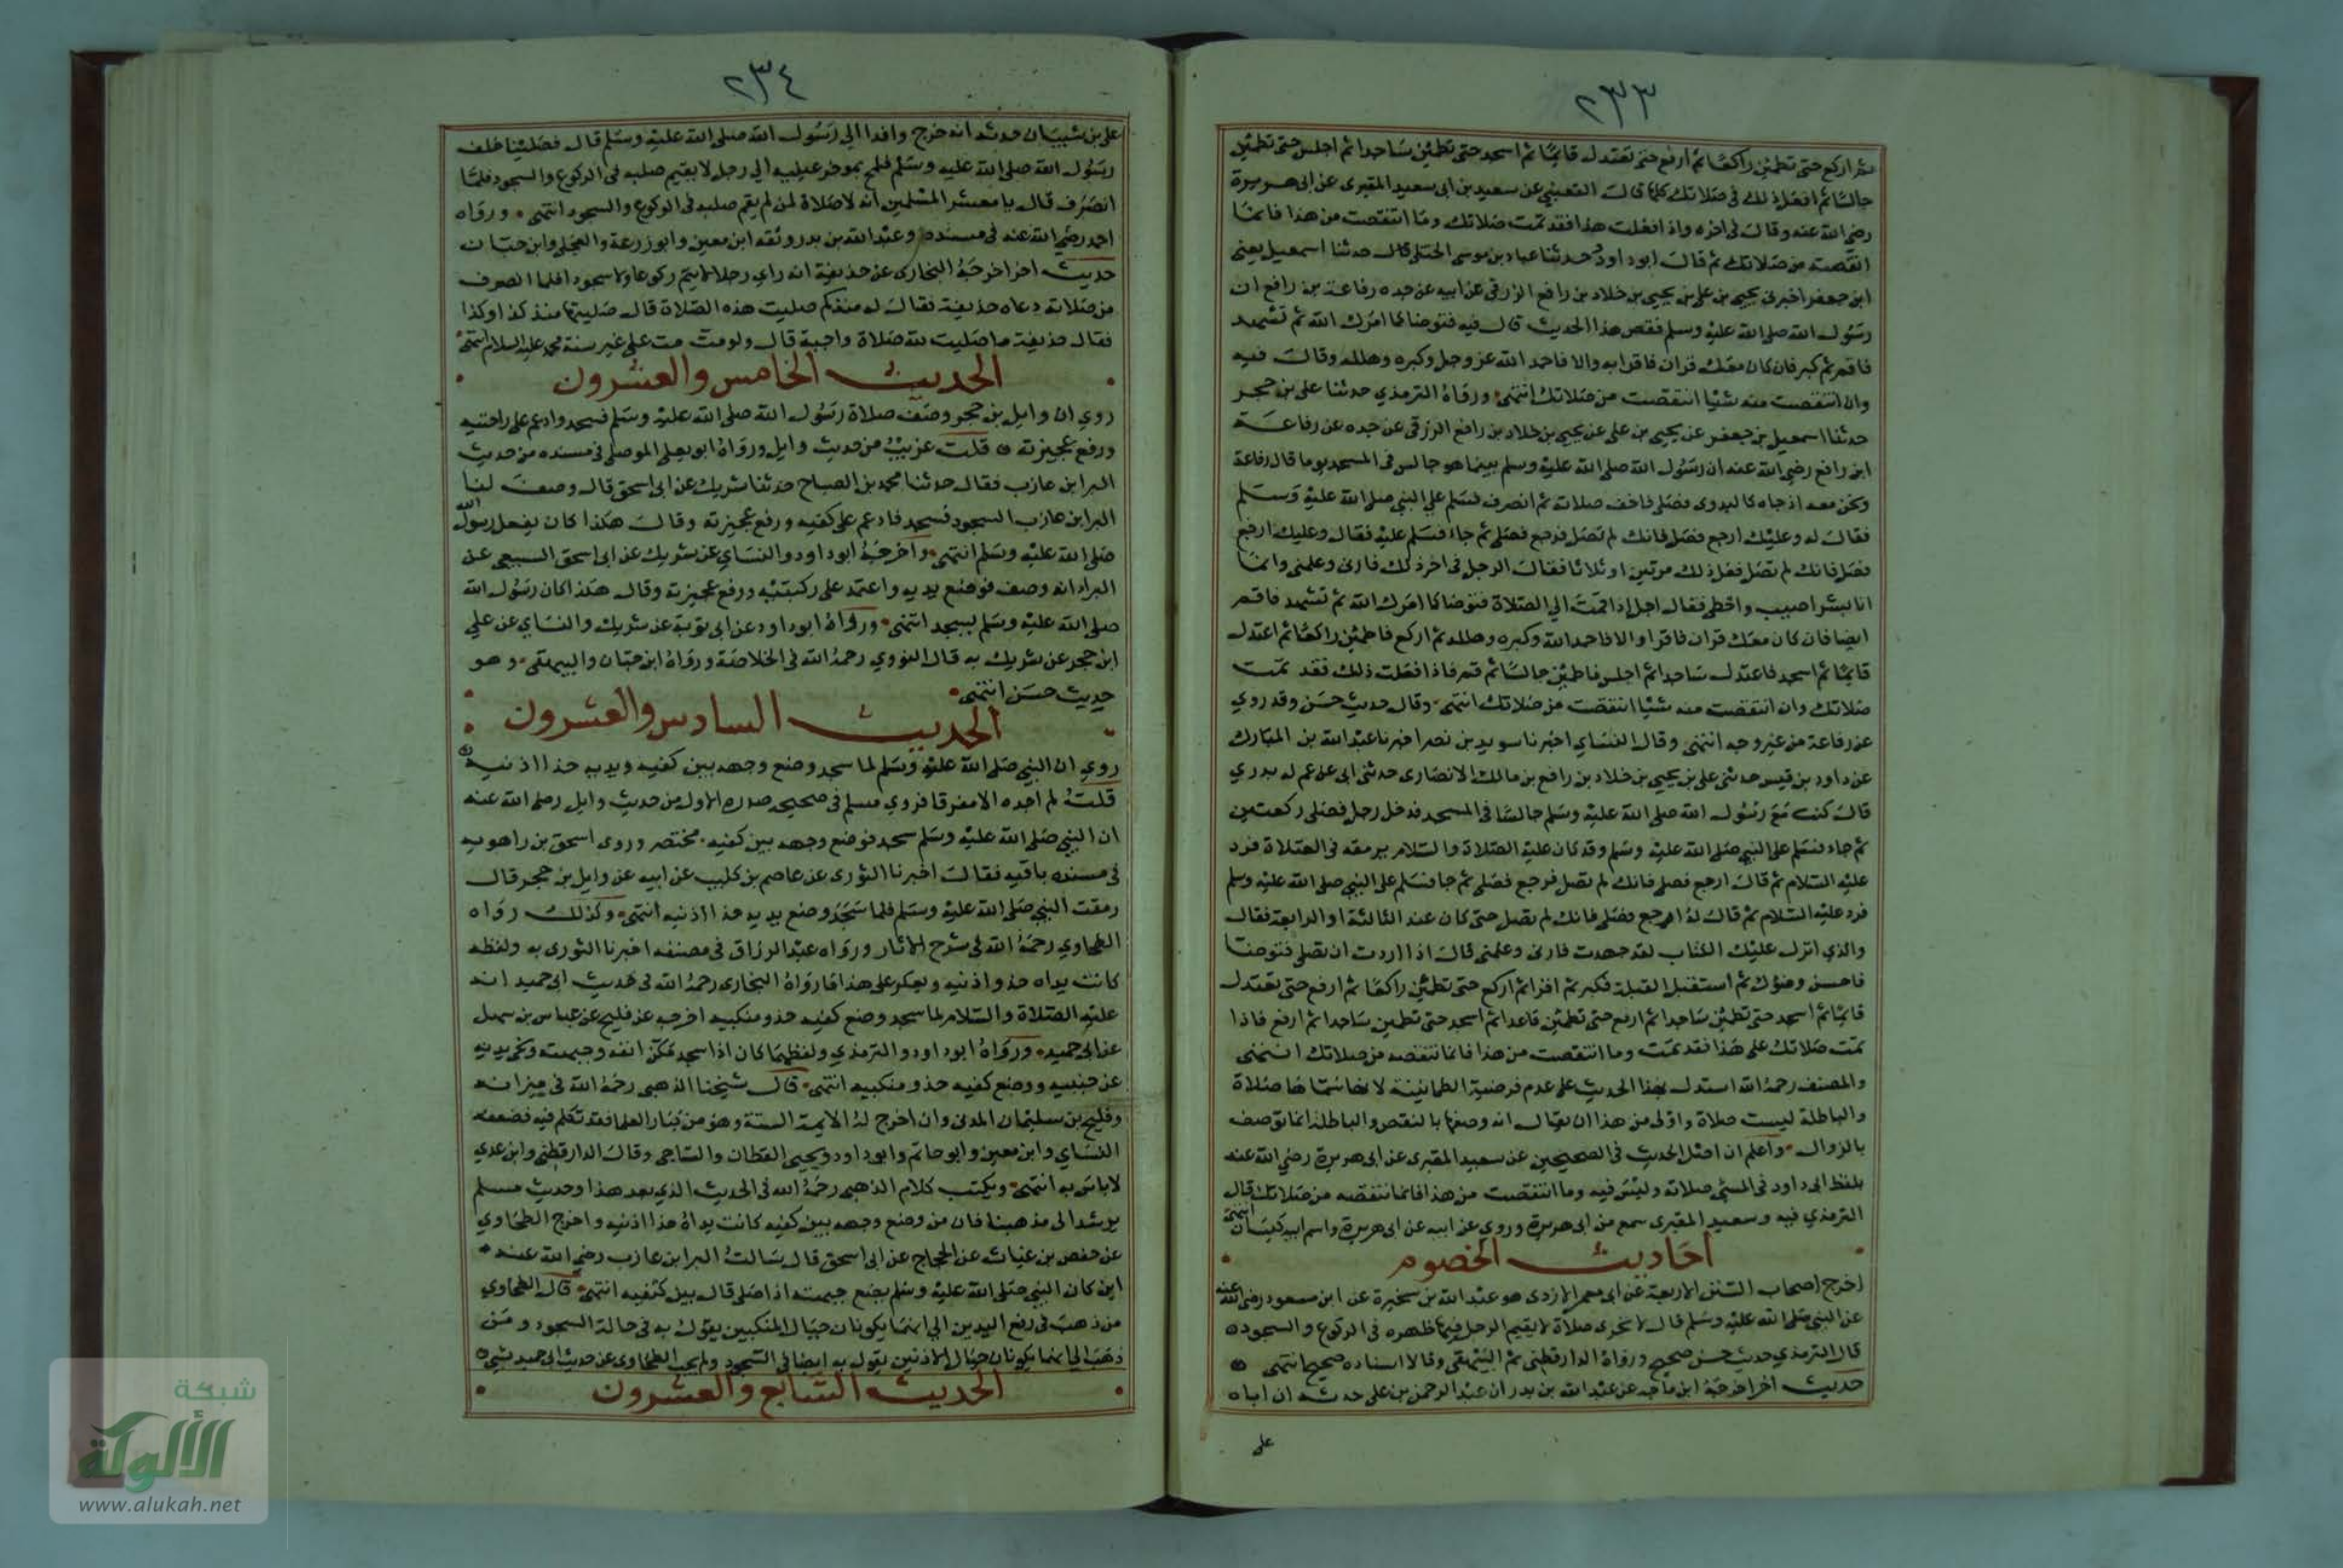 ٢٣٣
ثم اركع حتى تطمئن راكعا ثم ارفع حتى تعتدل قائما ثم اسجد حتى تطمئن ساجدا ثم اجلس حتى تطمئن
جالسا ثم افعل ذلك في صلاتك كلها قال القعنبي عن سعيد بن ابي سعيد المقبري عن ابي هريرة
رضي الله عنه وقال في اخره واذا فعلت هذا فقد تمت صلاتك وما انتقصت من هذا فانما
انتقصته من صلاتك ثم قال ابو داود حدثنا عباد بن موسى الختلي قال حدثنا اسمعيل يعني
ابن جعفر اخبرني يحيى بن علي بن يحيى بن خلاد بن رافع الزرقي عن ابيه عن جده رفاعة بن رافع ان
رسول الله صلى الله عليه وسلم فقص هذا الحديث قال فيه فتوضا كما امرك الله ثم تشهد
فاقم ثم كبر فان كان معك قران فاقرا به والا فاحمد الله عز وجل وكبره وهلله وقال فيه
وان انتقصت منه شيا انتقصت من صلاتك انتهى ورواه الترمذي حدثنا علي بن حجر
حدثنا اسمعيل بن جعفر عن يحيى بن علي عن يحيى بن خلاد بن رافع الزرقي عن جده عن رفاعة
ابن رافع رضي الله عنه ان رسول الله صلى الله عليه وسلم بينما هو جالس في المسجد يوما قال رفاعة
ونحن معه اذ جاه كالبدوي فصلى فاخف صلاته ثم انصرف فسلم على النبي صلى الله عليه وسلم
فقال له وعليك ارجع فصل فانك لم تصل فرجع فصلى ثم جاء فسلم عليه فقال وعليك ارجع
فصل فانك لم تصل ففعل ذلك مرتين او ثلاثا فقال الرجل في اخر ذلك فارني وعلمني وانما
انا بشر اصيب واخطى فقال اجل اذا قمت الى الصلاة فتوضا كما امرك الله ثم تشهد فاقم
ايضا فان كان معك قران فاقرا والا فاحمد الله وكبره وهلله ثم اركع فاطمئن راكعا ثم اعتدل
قائما ثم اسجد فاعتدل ساجدا ثم اجلس فاطمئن جالسا ثم قم فاذا فعلت ذلك فقد تمت
صلاتك وان انتقصت منه شيا انتقصت من صلاتك انتهى وقال حديث حسن وقد روي
عن رفاعة من غير وجه انتهى وقال النسائي اخبرنا سويد بن نصر اخبرنا عبد الله بن المبارك
عن داود بن قيس حدثني علي بن يحيى بن خلاد بن رافع بن مالك الانصاري حدثني ابي عن عم له بدري
قال كنت مع رسول الله صلى الله عليه وسلم جالسا في المسجد فدخل رجل فصلى ركعتين
ثم جاء فسلم على النبي صلى الله عليه وسلم وقد كان عليه الصلاة والسلام يرمقه في الصلاة فرد
عليه السلام ثم قال ارجع فصل فانك لم تصل فرجع فصلى ثم جا فسلم على النبي صلى الله عليه وسلم
فرد عليه السلام ثم قال له ارجع فصل فانك لم تصل حتى كان عند الثالثة او الرابعة فقال
والذي انزل عليك الكتاب لقد جهدت فارني وعلمني قال اذا اردت ان تصلي فتوضا
فاحسن وضوك ثم استقبل القبلة فكبر ثم اقرا ثم اركع حتى تطمئن راكعا ثم ارفع حتى تعتدل
قائما ثم اسجد حتى تطمئن ساجدا ثم ارفع حتى تطمئن قاعدا ثم اسجد حتى تطمين ساجدا ثم ارفع فاذا
تمت صلاتك على هذا فقد تمت وما انتقصت من هذا فانما تنتقصه من صلاتك انتهى
والمصنف رحمه الله استدل بهذا الحديث على عدم فرضية الطمانينة لانه سماها صلاة
والباطلة ليست صلاة واولى من هذا ان يقال انه وصفها بالنقص والباطلة انما توصف
بالزوال واعلم ان اصل الحديث في الصحيحين عن سعيد المقبري عن ابي هريرة رضي الله عنه
بلفظ ابي داود في المسي صلاته وليس فيه وما انتقصت من هذا فانما تنتقصه من صلاتك قال
الترمذي فيه وسعيد المقبري سمع من ابي هريرة وروى عن ابيه عن ابي هريرة واسم ابيه كيسان انتهى
احاديث الخصوم
اخرج اصحاب السنن الاربعة عن ابي معمر الازدي هو عبد الله بن سخبرة عن ابن مسعود رضي الله عنه
عن النبي صلى الله عليه وسلم قال لا تجزى صلاة لا يقيم الرجل فيها ظهره في الركوع والسجود
قال الترمذي حديث حسن صحيح ورواه الدارقطني ثم البيهقي وقالا اسناده صحيح انتهى
حديث اخر اخرجه ابن ماجه عن عبد الله بن بدر ان عبد الرحمن بن علي حدثه ان اباه
على
٢٣٤
علي بن شيبان حدثه انه خرج وافدا الى رسول الله صلى الله عليه وسلم قال فصلينا خلف
رسول الله صلى الله عليه وسلم فلمح بموخر عينيه الى رجل لا يقيم صلبه في الركوع والسجود فلما
انصرف قال يا معشر المسلمين انه لا صلاة لمن لم يقم صلبه في الركوع والسجود انتهى ورواه
احمد رضي الله عنه في مسنده وعبد الله بن بدر وثقه ابن معين وابو زرعة والعجلي وابن حبان
حديث اخر اخرجه البخاري عن حذيفة انه راى رجلا لا يتم ركوعا ولا سجودا فلما انصرف
من صلاته دعاه حذيفة فقال له منذ كم صليت هذه الصلاة قال صليتها منذ كذا وكذا
فقال حذيفة ما صليت لله صلاة واحبه قال ولو مت مت على غير سنة محمد عليه السلام انتهى
الحديث الخامس والعشرون
روي ان وايل بن حجر وصف صلاة رسول الله صلى الله عليه وسلم فسجد وادعم على راحتيه
ورفع عجيزته قلت غريب من حديث وايل ورواه ابو يعلى الموصلي في مسنده من حديث
البرا بن عازب فقال حدثنا محمد بن الصباح حدثنا شريك عن ابي اسحق قال وصف لنا
البرا بن عازب السجود فسجد فادعم على كفيه ورفع عجيزته وقال هكذا كان يفعل رسول الله
صلى الله عليه وسلم انتهى واخرجه ابو داود والنساي عن شريك عن ابي اسحق السبيعي عن
البراء انه وصف فوضع يديه واعتمد على ركبتيه ورفع عجيزته وقال هكذا كان رسول الله
صلى الله عليه وسلم يسجد انتهى ورواه ابو داود عن ابي توبة عن شريك والنساي عن علي
ابن حجر عن شريك به قال النووي رحمه الله في الخلاصة ورواه ابن حبان والبيهقي وهو
حديث حسن انتهى
الحديث السادس والعشرون
روي ان النبي صلى الله عليه وسلم لما سجد وضع وجهه بين كفيه ويديه حذا اذنيه
قلت لم اجده الا مفرقا فروى مسلم في صحيحه صدره الاول من حديث وايل رضي الله عنه
ان النبي صلى الله عليه وسلم سجد فوضع وجهه بين كفيه مختصر وروى اسحق بن راهويه
في مسنده باقيه فقال اخبرنا الثوري عن عاصم بن كليب عن ابيه عن وايل بن حجر قال
رمقت النبي صلى الله عليه وسلم فلما سجد وضع يديه حذا اذنيه انتهى وكذلك رواه
الطحاوي رحمه الله في شرح الاثار ورواه عبد الرزاق في مصنفه اخبرنا الثوري به ولفظه
كانت يداه حذو اذنيه ويعكر على هذا ما رواه البخاري رحمه الله في حديث ابي حميد انه
عليه الصلاة والسلام لما سجد وضع كفيه حذو منكبيه اخرجه عن فليح عن عباس بن سهل
عن ابي حميد ورواه ابو داود والترمذي ولفظهما كان اذا سجد مكن انفه وجبهته ونحى يديه
عن جنبيه ووضع كفيه حذو منكبيه انتهى قال شيخنا الذهبي رحمه الله في ميزانه
وفليح بن سليمان المدني وان اخرج له الايمة الستة وهو من كبار العلما فقد تكلم فيه فضعفه
النساي وابن معين وابو حاتم وابو داود ويحيى القطان والساجي وقال الدارقطني وابن عدي
لا باس به انتهى ويكتب كلام الذهبي رحمه الله في الحديث الذي بعد هذا وحديث مسلم
يرشد الى مذهبنا فان من وضع وجهه بين كفيه كانت يداه حذا اذنيه واخرج الطحاوي
عن حفص بن غياث عن الحجاج عن ابي اسحق قال سالت البرا بن عازب رضي الله عنه
اين كان النبي صلى الله عليه وسلم يضع جبهته اذا صلى قال بين كفيه انتهى قال الطحاوي
من ذهب في رفع اليدين الى انهما يكونان حيال المنكبين يقول به في حالة السجود ومن
ذهب الى انهما يكونان حيال الاذنين يقول به ايضا في السجود ولم يجب الطحاوي عن حديث ابي حميد بشي
الحديث السابع والعشرون
شبكة
الألوكة
www.alukah.net